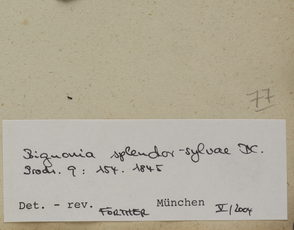 77
Bignonia splendor-sylvae DC.
Prodr. 9: 154. 1845
Det. - rev. FÖRTHER München V/2004